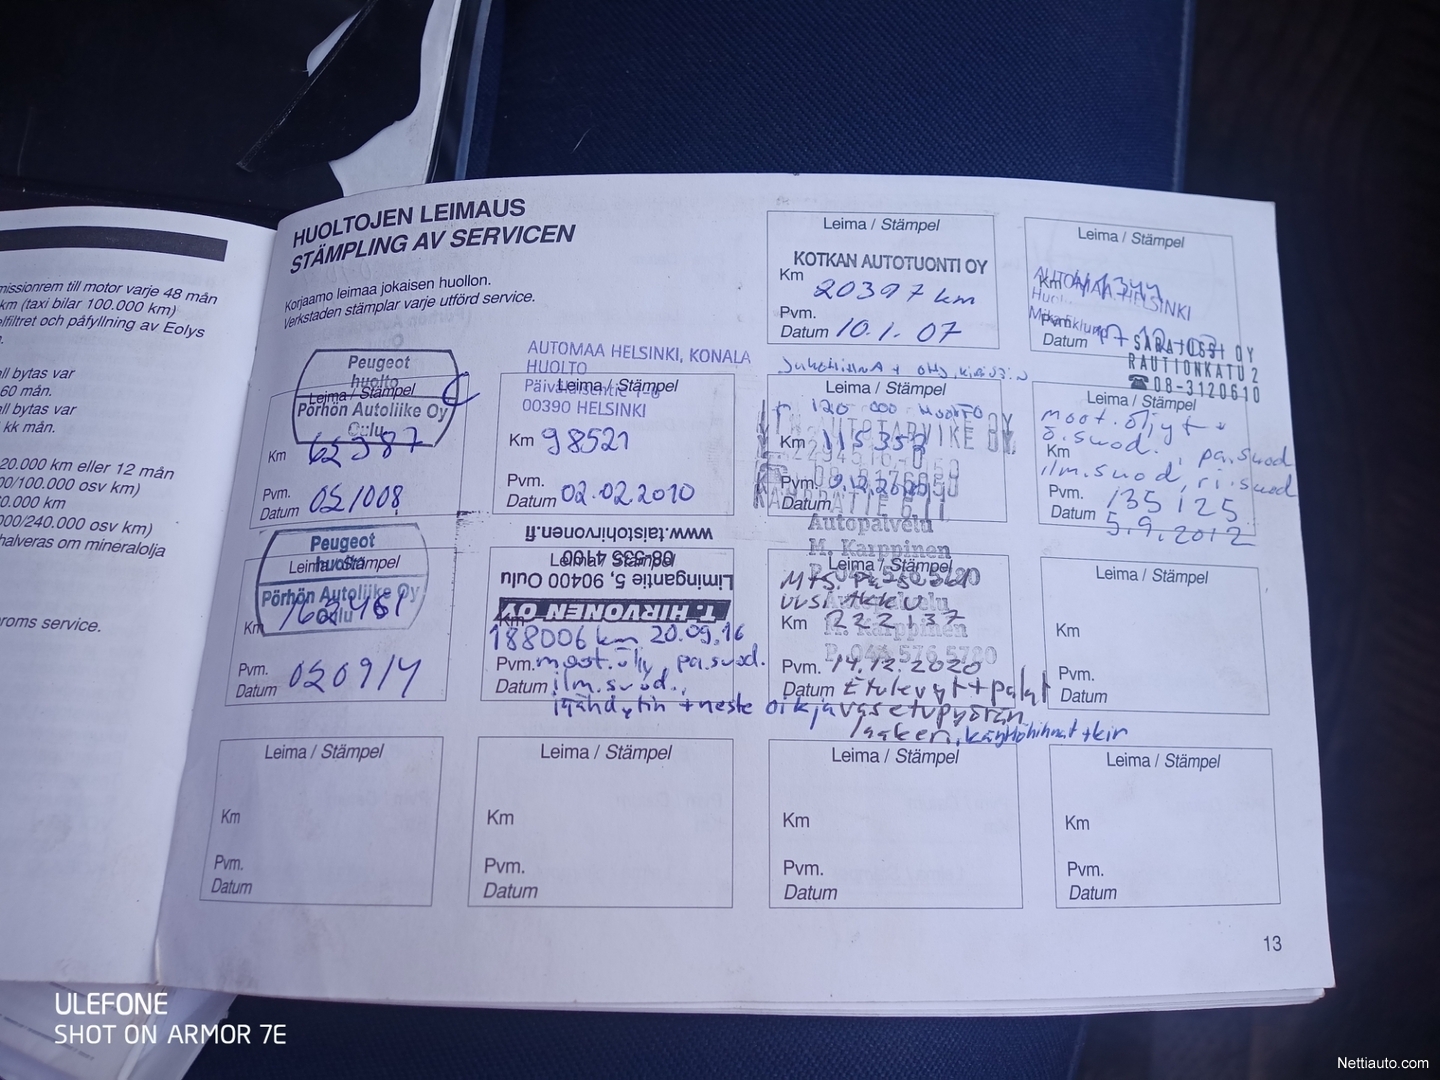 missionrem till motor varje 48 mån
km (taxi bilar 100.000 km)
elfiltret och påfyllning av Eolys
ell bytas var
60 mån.
ell bytas var
kk mån.
20.000 km eller 12 mån
00/100.000 osv km)
0.000 km
000/240.000 osv km)
halveras om mineralolja
roms service.
HUOLTOJEN LEIMAUS
STÄMPLING AV SERVICEN
Korjaamo leimaa jokaisen huollon.
Verkstaden stämplar varje utförd service.
Leima / Stämpel
KOTKAN AUTOTUONTI OY
Km 20397 km
Pvm.
Datum 10.1.07
Leima / Stämpel
AUTOMAA HELSINKI
Km
Pvm.
Datum
Peugeot
huolto
Leima / Stämpel
Pörhön Autoliike Oy
Oulu
Km 62387
Pvm.
Datum 051008
AUTOMAA HELSINKI, KONALA
HUOLTO
Leima / Stämpel
00390 HELSINKI
Km 98521
Pvm.
Datum 02.02.2010
Leima / Stämpel
120 000 HUOLTO
Km 115352
Pvm.
Datum
RAUTIONKATU 2
☎08-3120610
Leima / Stämpel
moot.öljyt +
ö.suod., pa.suod
Km
ilm.suod, ri.suod
Pvm. 135 125
Datum 5.9.2012
Peugeot
huolto
Leima / Stämpel
Pörhön Autoliike Oy
Oulu
Km
Pvm.
Datum 050914
www.taistohirvonen.fi
08-535 4100
Leima / Stämpel
Limingantie 5, 90400 Oulu
T. HIRVONEN OY
Km
188006 km 20.09.16
Pvm. moot.öljy, pa.suod.
Datum ilm.suod.,
jäähdytin + neste
Autopalvelu
M. Karppinen
Leima / Stämpel
uusi Akku
Km 222137
M. Karppinen
P. 044 576 5780
Pvm. 14.12.2020
Datum Etulevyt + palat
oik ja vas etupyörän
laakeri, käyttöhihnat + kir
Leima / Stämpel
Km
Pvm.
Datum
Leima / Stämpel
Km
Pvm.
Datum
Leima / Stämpel
Km
Pvm.
Datum
Leima / Stämpel
Km
Pvm.
Datum
Leima / Stämpel
Km
Pvm.
Datum
13
ULEFONE
SHOT ON ARMOR 7E
Nettiauto.com